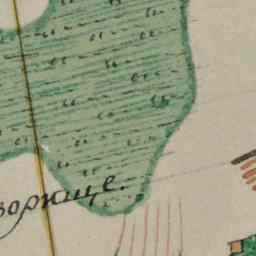 ворище.